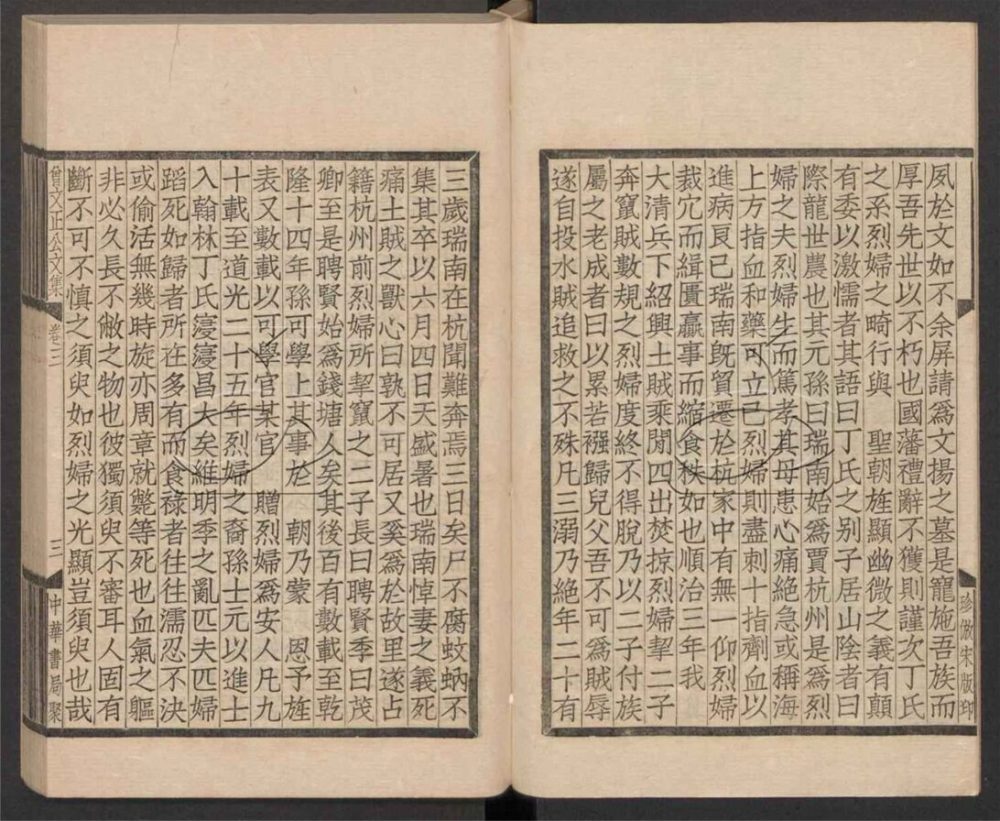 夙於文如不余屏請爲文揚之墓是寵施吾族而
厚吾先世以不朽也國藩禮辭不獲則謹次丁氏
之系烈婦之畸行與　聖朝旌顯幽微之義有顛
有委以激懦者其語曰丁氏之别子居山陰者曰
際龍世農也其元孫曰瑞南始爲賈杭州是爲烈
婦之夫烈婦生而篤孝其母患心痛絕急或稱海
上方指血和藥可立已烈婦則盡刺十指劑血以
進病艮已瑞南旣貿遷於杭家中有無一仰烈婦
裁宂而緝匱嬴事而縮食秩如也順治三年我
大清兵下紹興土賊乘閒四出焚掠烈婦挈二子
奔竄賊數規之烈婦度終不得脫乃以二子付族
屬之老成者曰以累若襁歸兒父吾不可爲賊辱
遂自投水賊追救之不殊凡三溺乃絕年二十有
珍倣宋版印
三歲瑞南在杭聞難奔焉三日矣尸不腐蚊蚋不
集其卒以六月四日天盛暑也瑞南悼妻之義死
痛土賊之獸心曰孰不可居又奚爲於故里遂占
籍杭州前烈婦所挈竄之二子長曰聘賢季曰茂
卿至是聘賢始爲錢塘人矣其後百有數載至乾
隆十四年孫可學上其事於　朝乃蒙　恩予旌
表又數載以可學官某官　贈烈婦爲安人凡九
十載至道光二十五年烈婦之裔孫士元以進士
入翰林丁氏寖寖昌大矣維明季之亂匹夫匹婦
蹈死如歸者所在多有而食祿者往往濡忍不決
或偷活無幾時旋亦周章就斃等死也血氣之軀
非必久長不敝之物也彼獨須臾不審耳人固有
斷不可不慎之須臾如烈婦之光顯豈須臾也哉
曾文正公文集　卷三　三　中華書局聚